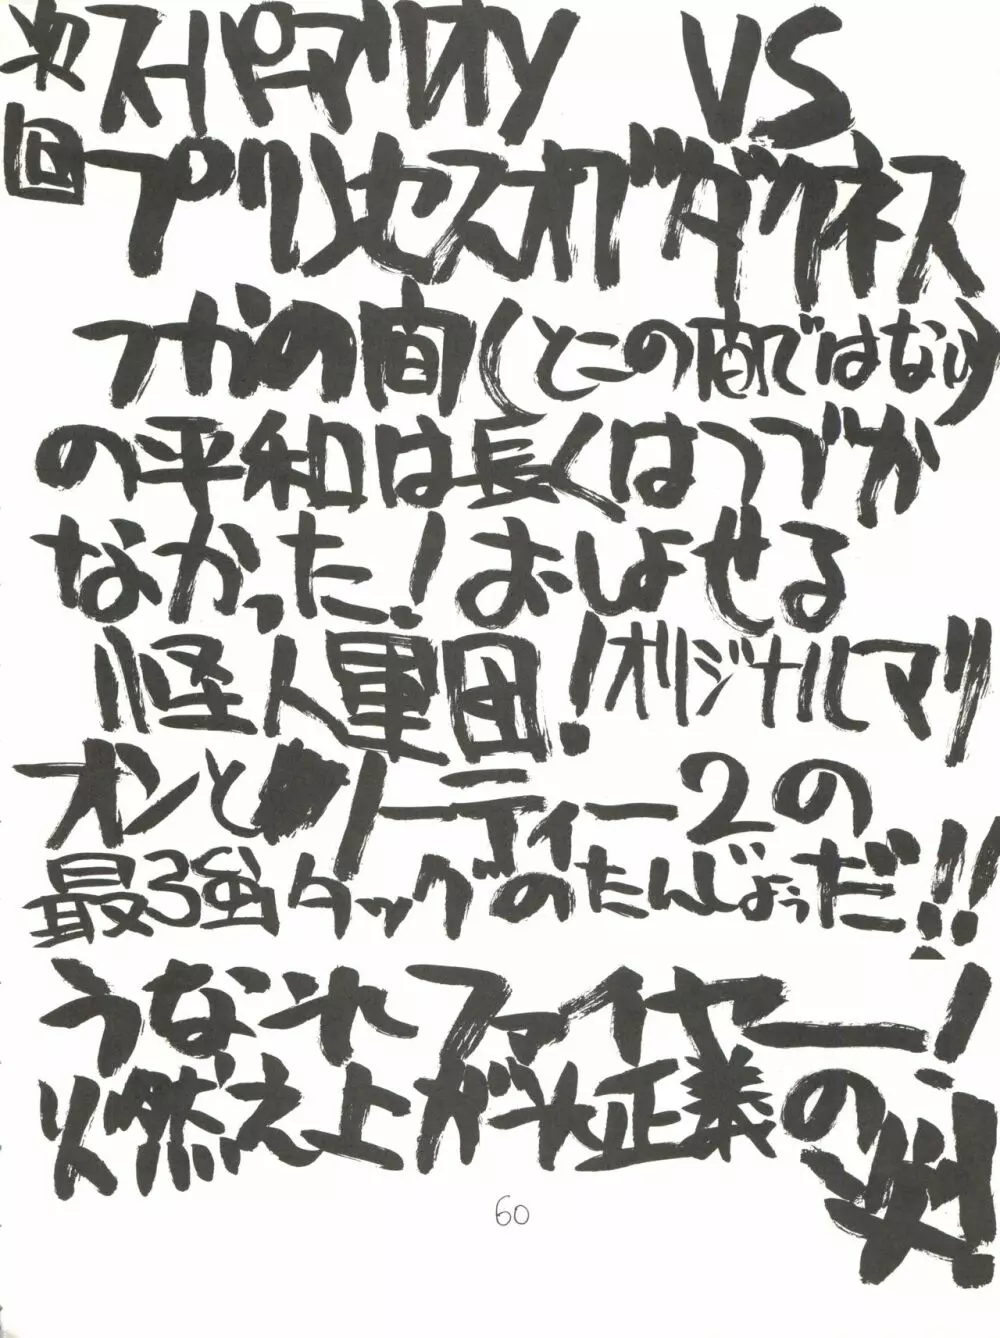 次回 スーパーマリオン VS
プリンセスオブダークネス
つかの間(とこの間ではない)
の平和は長くはつづか
なかった!おしよせる
怪人軍団!オリジナルマリ
オンと リーディー2の
最強タッグのたんじょうだ!!
うなれファイヤー!
燃え上がれ正義の炎!
60